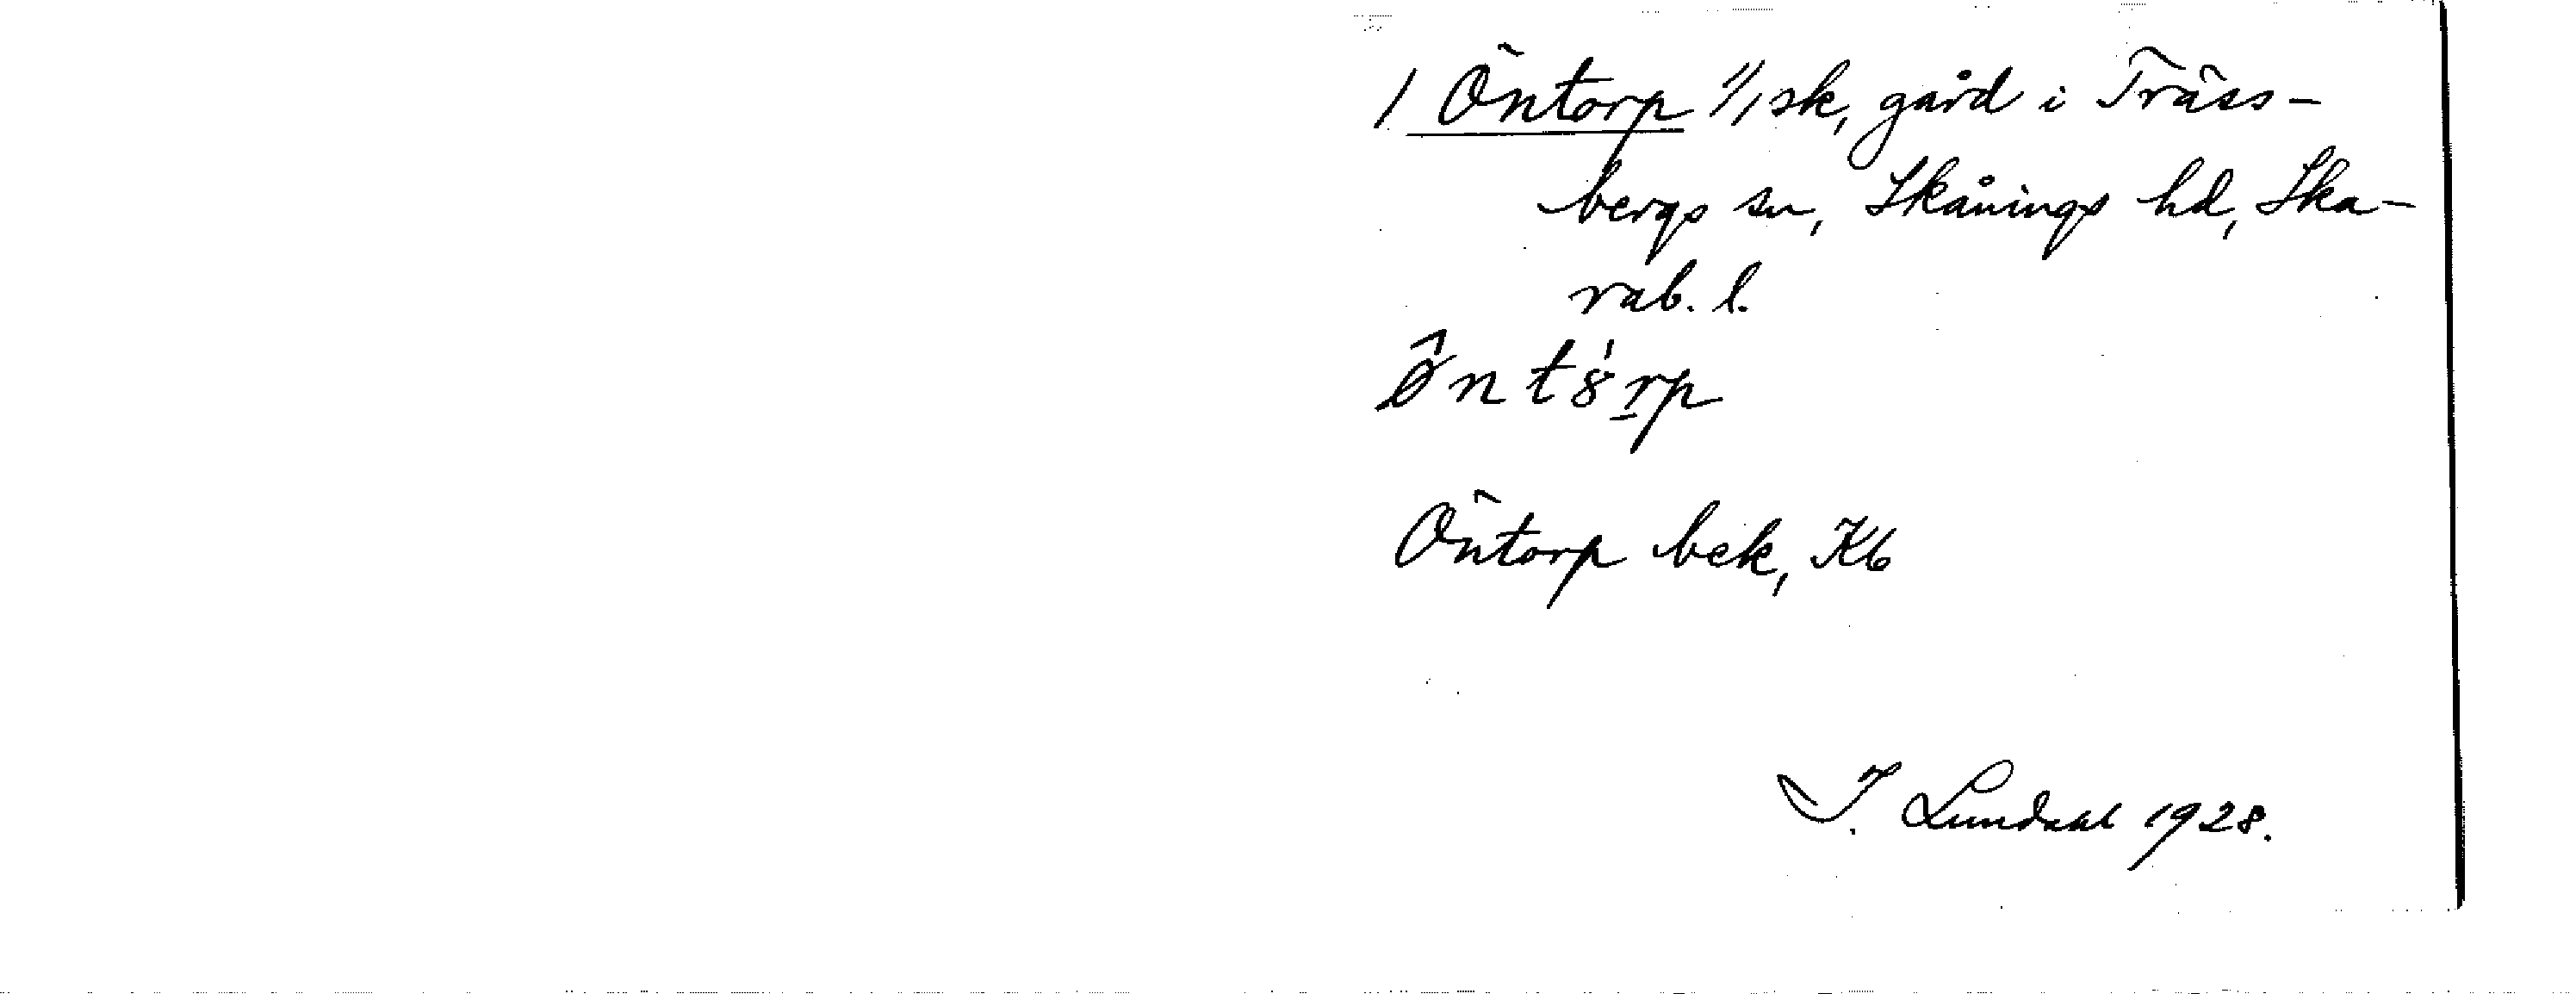 1 Öntorp 1/1 sk, gård i Träss-
bergs sn, Skånings hd, Ska-
rab. l.
Öntorp bek, Kb
I. Lundahl 1928.